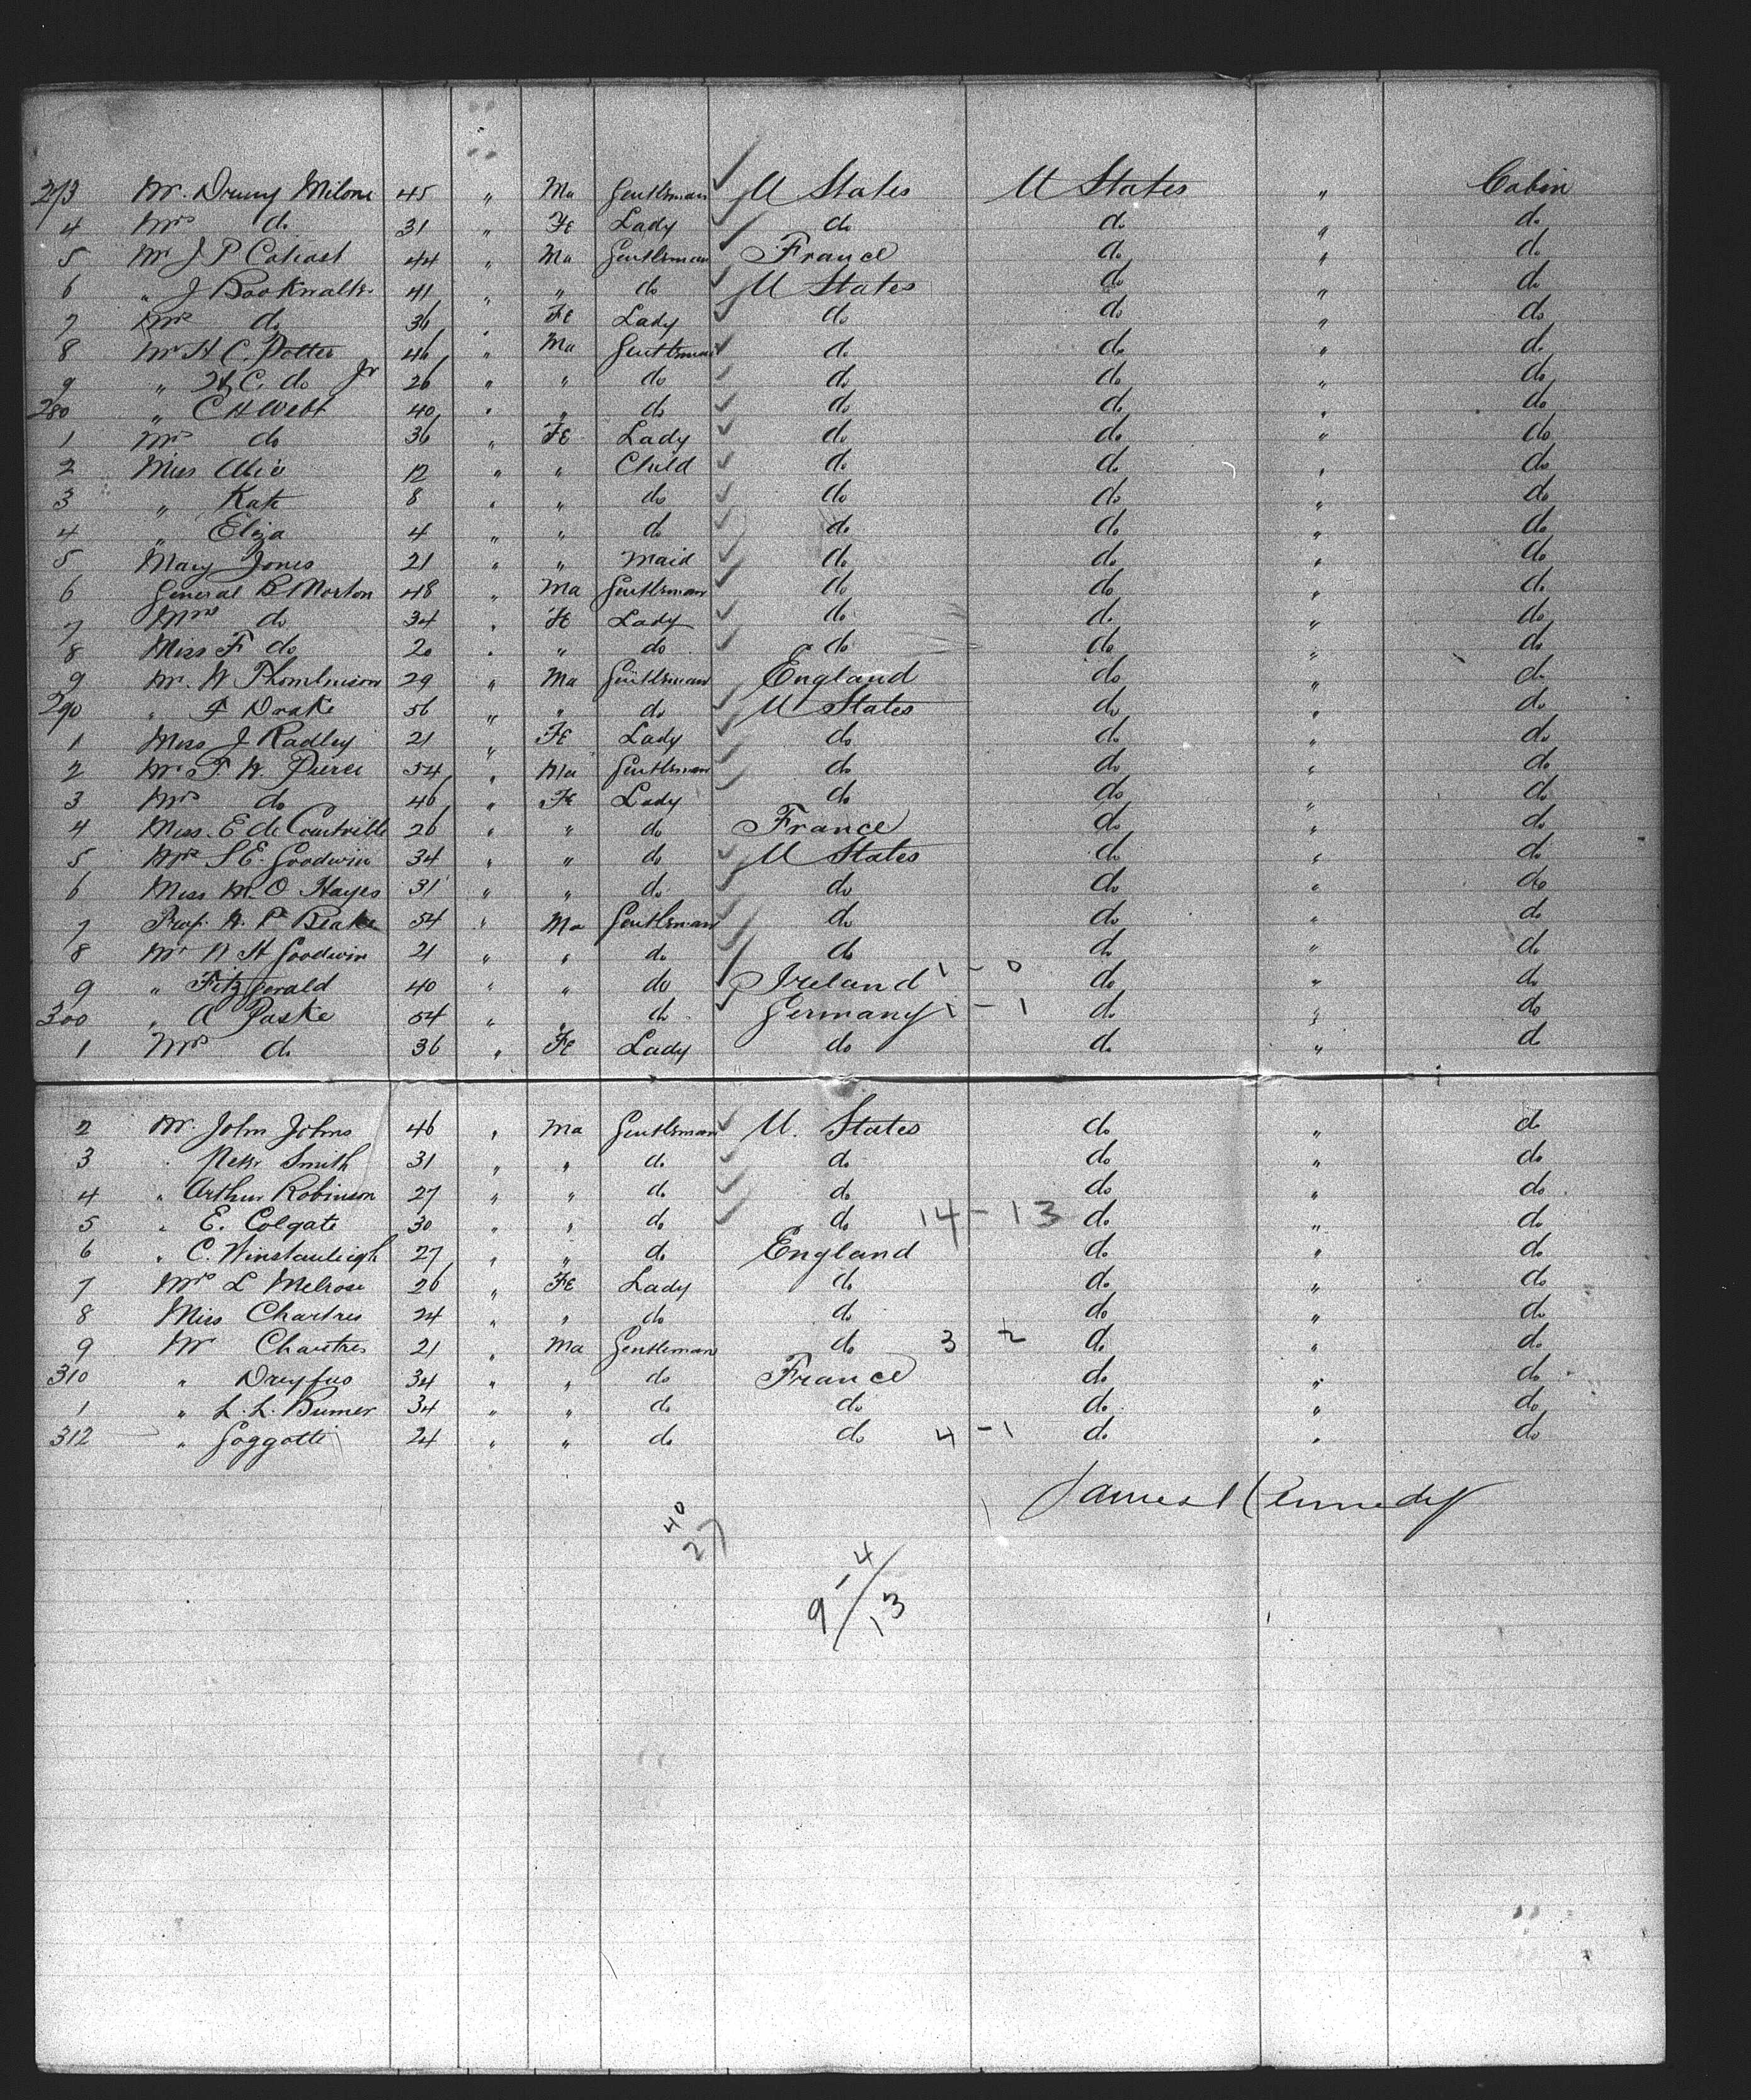 273 Mr. Drury Milone 45 " Ma Gentleman U States U States " Cabin
4 Mrs do 31 " Fe Lady do do " do
5 Mr J P Catiast 44 " Ma Gentleman France do " do
6 " J Bookwalter 41 " " do U States do " do
7 Mrs do 36 " Fe Lady do do " do
8 Mr H C. Potter 46 " Ma Gentleman do do " do
9 " H. C. do Jr 26 " " do do do " do
280 " C H Webb 40 " " do do do " do
1 Mrs do 36 " Fe Lady do do " do
2 Miss Alice 12 " " Child do do " do
3 " Kate 8 " " do do do " do
4 " Eliza 4 " " do do do " do
5 Mary Jones 21 " " Maid do do " do
6 General B Morton 48 " Ma Gentleman do do " do
7 Mrs do 34 " Fe Lady do do " do
8 Miss F do 20 " " do do do " do
9 Mr. W Thomlinson 29 " Ma Gentleman England do " do
290 " F Drake 56 " " do U States do " do
1 Miss J Radley 21 " Fe Lady do do " do
2 Mr F. W. Pierce 54 " Ma Gentleman do do " do
3 Mrs do 46 " Fe Lady do do " do
4 Miss. E de Courtville 26 " " do France do " do
5 Mrs S E. Goodwin 34 " " do U States do " do
6 Miss M. O Hayes 31 " " do do do " do
7 Prof. W. P Blake 54 " Ma Gentleman do do " do
8 Mr N H Goodwin 21 " " do do do " do
9 " Fitzgerald 40 " " do Ireland 1 - 0 do " do
300 " A Paske 54 " " do Germany 1 - 1 do " do
1 Mrs do 36 " Fe Lady do do " do
2 Mr. John Johns 46 " Ma Gentleman U. States do " do
3 " Peter Smith 31 " " do do do " do
4 " Arthur Robinson 27 " " do do do " do
5 " E. Colgate 30 " " do do 14 - 13 do " do
6 " C. Winstanleigh 27 " " do England do " do
7 Mrs L Melrose 26 " Fe Lady do do " do
8 Miss Chartres 24 " " do do do " do
9 Mr Chartres 21 " Ma Gentleman do 3 - 2 do " do
310 " Dreyfus 34 " " do France do " do
1 " L. L. Bumer 34 " " do do do " do
312 " Goggotti 24 " " do do 4 - 1 do " do
James Kennedy
40
27
9 - 4 / 13